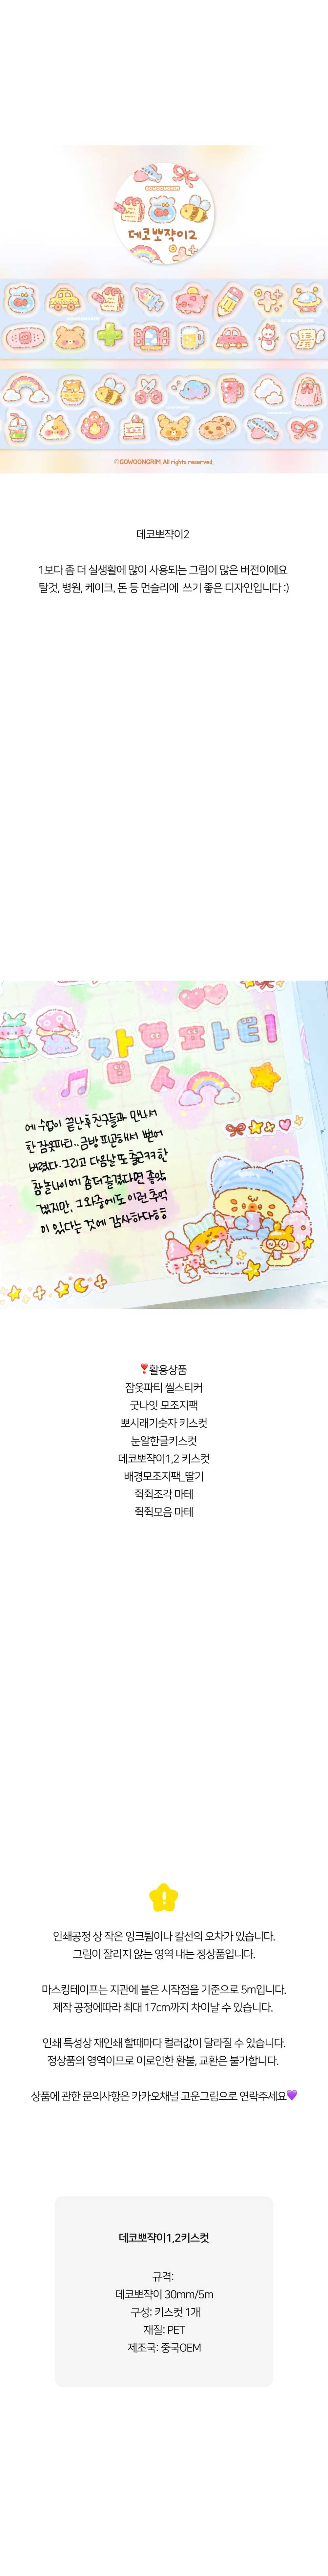 GOWOONGRIM
데코뽀쟉이2
©GOWOONGRIM. All rights reserved.
데코뽀쟉이2
1보다 좀 더 실생활에 많이 사용되는 그림이 많은 버전이에요
탈것, 병원, 케이크, 돈 등 먼슬리에 쓰기 좋은 디자인입니다 :)
잠옷파티
에 수업이 끝난 후 친구들과 만나서
한 잠옷파티.. 금방 피곤해서 뻗어
버렸다. 그리고 다음날 또 출근해
참 놀기에 좀 더 즐겼다면 좋았
겠지만, 그 와중에도 이런 추억
이 있다는 것에 감사하다ㅎㅎ
❣️활용상품
잠옷파티 씰스티커
굿나잇 모조지팩
뽀시래기숫자 키스컷
눈알한글키스컷
데코뽀쟉이1,2 키스컷
배경모조지팩_딸기
쥑쥑조각 마테
쥑쥑모음 마테
인쇄공정 상 작은 잉크튐이나 칼선의 오차가 있습니다.
그림이 잘리지 않는 영역 내는 정상품입니다.
마스킹테이프는 지관에 붙은 시작점을 기준으로 5m입니다.
제작 공정에따라 최대 17cm까지 차이날 수 있습니다.
인쇄 특성상 재인쇄 할때마다 컬러값이 달라질 수 있습니다.
정상품의 영역이므로 이로인한 환불, 교환은 불가합니다.
상품에 관한 문의사항은 카카오채널 고운그림으로 연락주세요💜
데코뽀쟉이1,2키스컷
규격:
데코뽀쟉이 30mm/5m
구성: 키스컷 1개
재질: PET
제조국: 중국OEM